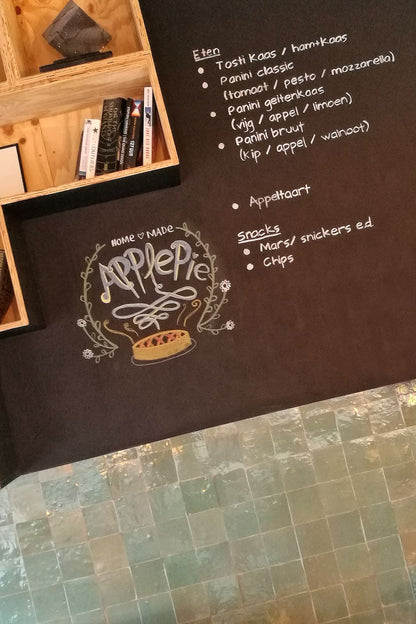 Eten
• Tosti kaas / ham+kaas
• Panini classic
(tomaat / pesto / mozzarella)
• Panini geitenkaas
(vijg / appel / limoen)
• Panini bruut
(kip / appel / walnoot)
• Appeltaart
snacks
• Mars/ snickers e.d.
• Chips
HOME ♡ MADE
APPlePie